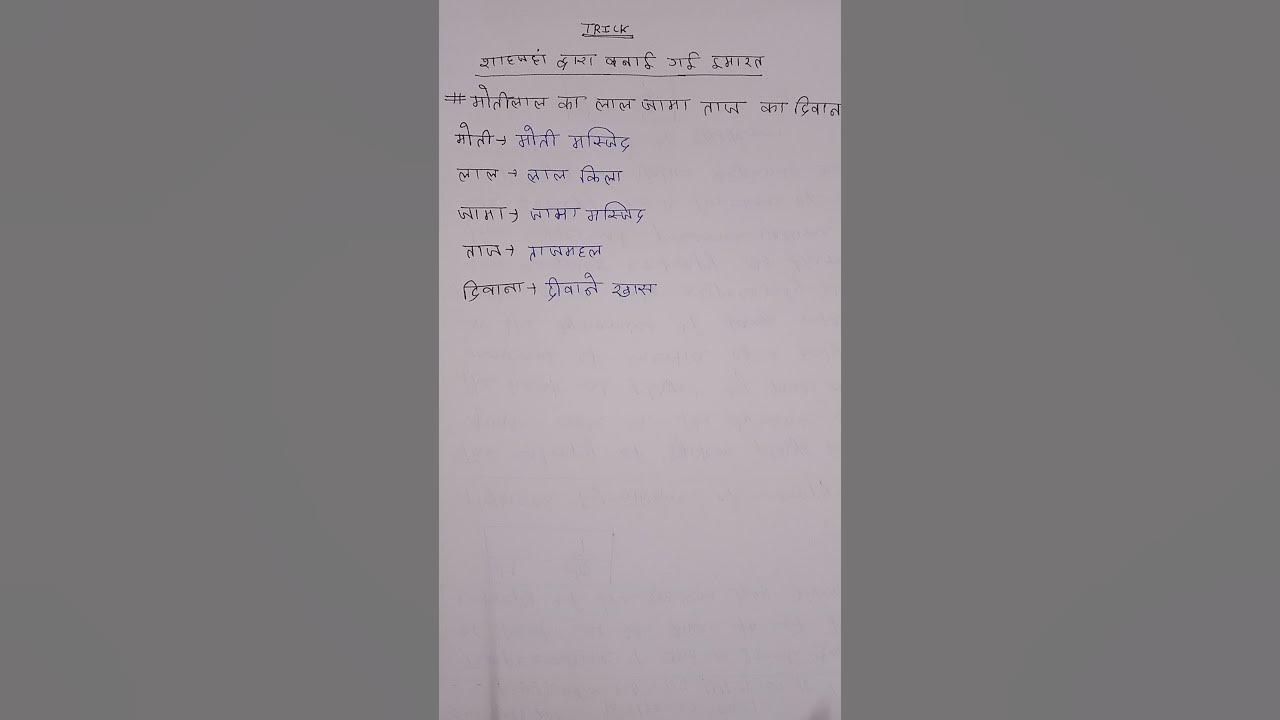 TRICK
शाहजहां द्वारा बनाई गई इमारत
# मोतीलाल का लाल जामा ताज का दिवान
मोती → मोती मस्जिद
लाल → लाल किला
जामा → जामा मस्जिद
ताज → ताजमहल
दिवाना → दीवाने खास